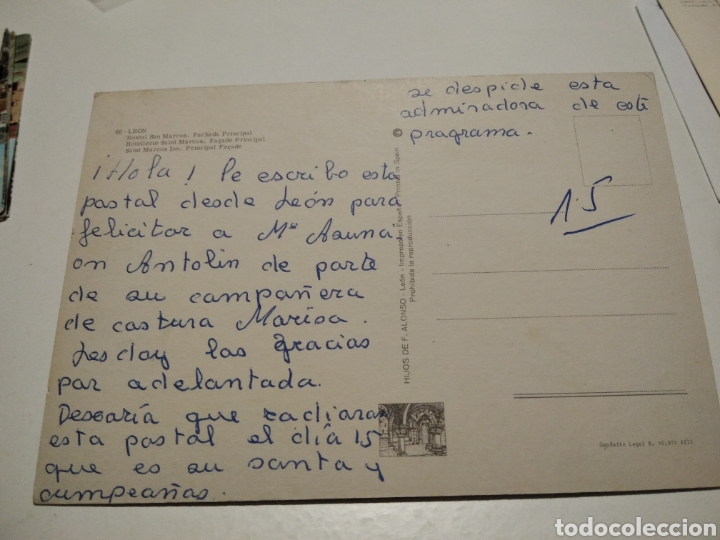 60 - LEON
Hostal San Marcos. Fachada Principal
Hotellerie Saint Marcos. Façade Principal
Saint Marcos Inn. Principal Façade
¡Hola! Le escribo esta
postal desde León para
felicitar a Mª Asunci
on Antolin de parte
de su compañera
de costura Marisa.
Les doy las gracias
por adelantada.
Desearía que radiaran
esta postal el día 15
que es su santa y
cumpeañas.
se despide esta
admiradora de este
programa.
15
HIJOS DE F. ALONSO - León - Impreso en España - Printed in Spain
Prohibida la reproducción
©
Depósito Legal B.
todocoleccion
todocoleccion.net